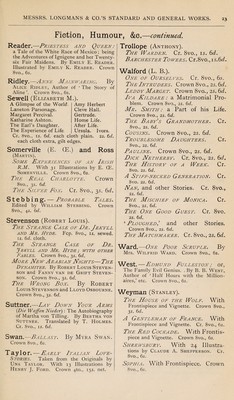 MESSRS. LONGMANS & CO.'S STANDARD AND GENERAL WORKS. 23
Fiction, Humour, &c.—continued.
Reader.—PRIESTESS AND QUEEN:
a Tale of the White Race of Mexico; being
the Adventures of Ignigene and her Twenty-
six Fair Maidens. By EMILY E. READER.
Illustrated by EMILY K. READER. Crown
8vo., 6s.
Ridley.—ANNE MAINWARING. By
ALICE RIDLEY, Author of 'The Story of
Aline'. Crown 8vo., 6s.
Sewell (ELIZABETH M.).
A Glimpse of the World.
Laneton Parsonage.
Margaret Percival.
Katharine Ashton.
The Earl's Daughter.
The Experience of Life.
Amy Herbert
Cleve Hall.
Gertrude.
Home Life.
After Life.
Ursula. Ivors.
Cr. 8vo., 1s. 6d. each cloth plain. 2s. 6d.
each cloth extra, gilt edges.
Somerville (E. Œ.) and Ross
(MARTIN).
SOME EXPERIENCES OF AN IRISH
R.M. With 31 Illustrations by E. Œ.
SOMERVILLE. Crown 8vo., 6s.
THE REAL CHARLOTTE. Crown
8vo., 3s. 6d.
THE SILVER FOX. Cr. 8vo., 3s. 6d.
Stebbing.—PROBABLE TALES.
Edited by WILLIAM STEBBING. Crown
8vo., 4s. 6d.
Stevenson (ROBERT LOUIS).
THE STRANGE CASE OF DR. JEKYLL
AND MR. HYDE. Fcp. 8vo., 1s. sewed.
1s. 6d. cloth.
THE STRANGE CASE OF DR.
JEKYLL AND MR. HYDE; WITH OTHER
FABLES. Crown 8vo., 3s. 6d.
MORE NEW ARABIAN NIGHTS—THE
DYNAMITER. By ROBERT LOUIS STEVEN-
SON and FANNY VAN DE GRIFT STEVEN-
SON. Crown 8vo., 3s. 6d.
THE WRONG BOX. By ROBERT
LOUIS STEVENSON and LLOYD OSBOURNE.
Crown 8vo., 3s. 6d.
Suttner.—LAY DOWN YOUR ARMS
(Die Waffen Nieder): The Autobiography
of Martha von Tilling. By BERTHA VON
SUTTNER. Translated by T. HOLMES.
Cr. 8vo., 1s. 6d.
Swan.—BALLAST. By MYRA SWAN.
Crown 8vo., 6s.
Taylor.—EARLY ITALIAN LOVE-
STORIES. Taken from the Originals by
UNA TAYLOR. With 13 Illustrations by
HENRY J. FORD. Crown 4to., 15s. net.
Trollope (ANTHONY).
THE WARDEN. Cr. 8vo., 1s. 6d.
BARCHESTER TOWERS. Cr. 8vo., 1s. 6d.
Walford (L. B.).
ONE OF OURSELVES. Cr. 8vo., 6s.
THE INTRUDERS. Crown 8vo., 2s. 6d.
LEDDY MARGET. Crown 8vo., 2s. 6d.
IVA KILDARE: a Matrimonial Pro-
blem. Crown 8vo., 2s. 6d.
MR. SMITH: a Part of his Life.
Crown 8vo., 2s. 6d.
THE BABY'S GRANDMOTHER. Cr.
8vo., 2s. 6d.
COUSINS. Crown 8vo., 2s. 6d.
TROUBLESOME DAUGHTERS. Cr.
8vo., 2s. 6d.
PAULINE. Crown 8vo., 2s. 6d.
DICK NETHERBY. Cr. 8vo., 2s. 6d.
THE HISTORY OF A WEEK. Cr.
8vo., 2s. 6d.
A STIFF-NECKED GENERATION. Cr.
8vo., 2s. 6d.
NAN, and other Stories. Cr. 8vo.,
2s. 6d.
THE MISCHIEF OF MONICA. Cr.
8vo., 2s. 6d.
THE ONE GOOD GUEST. Cr. 8vo.,
2s. 6d.
'PLOUGHED,' and other Stories.
Crown 8vo., 2s. 6d.
THE MATCHMAKER. Cr. 8vo., 2s. 6d.
Ward.—ONE POOR SCRUPLE. By
MRS. WILFRID WARD. Crown 8vo., 6s.
West.—EDMUND FULLESTON: or,
The Family Evil Genius. By B. B. WEST,
Author of 'Half Hours with the Million-
aires,' etc. Crown 8vo., 6s.
Weyman (STANLEY).
THE HOUSE OF THE WOLF. With
Frontispiece and Vignette. Crown 8vo.,
3s. 6d.
A GENTLEMAN OF FRANCE. With
Frontispiece and Vignette. Cr. 8vo., 6s.
THE RED COCKADE. With Frontis-
piece and Vignette. Crown 8vo., 6s.
SHREWSBURY. With 24 Illustra-
tions by CLAUDE A. SHEPPERSON. Cr.
8vo., 6s.
SOPHIA. With Frontispiece. Crown
8vo., 6s.